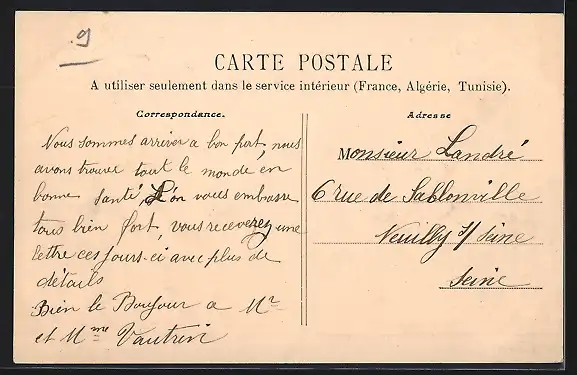 9
CARTE POSTALE
A utiliser seulement dans le service intérieur (France, Algérie, Tunisie).
Correspondance.
Nous sommes arriver a bon port, nous
avons trouver tout le monde en
bonne santé, L'on vous embrasse
tous bien fort, vous receverez une
lettre ces jours-ci avec plus de
détails
Bien le Bonjour a Mr
et Mme Vautrin
Adresse
Monsieur Landré
6 rue de Sablonville
Neuilly s/ Seine
Seine